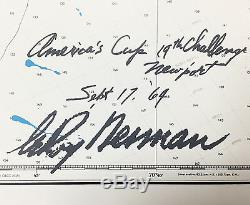 America's Cup 19th Challenge
Newport
Sept 17. '64
LeRoy Neiman